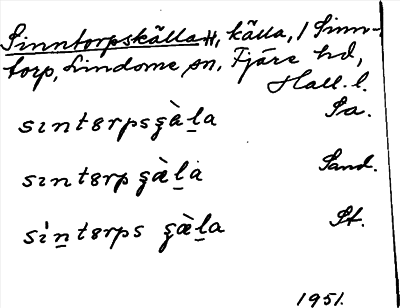 Sinntorpskällan, källa, i Sinn-
torp, Lindome sn, Fjäre hd,
Hall. l.
sıntɞrpsʂà̈l̲a Sa.
sıntɞrp ʂæ̀l̲a Sand.
sìn̲tɞrps ʂæ̀l̲a St.
1951.